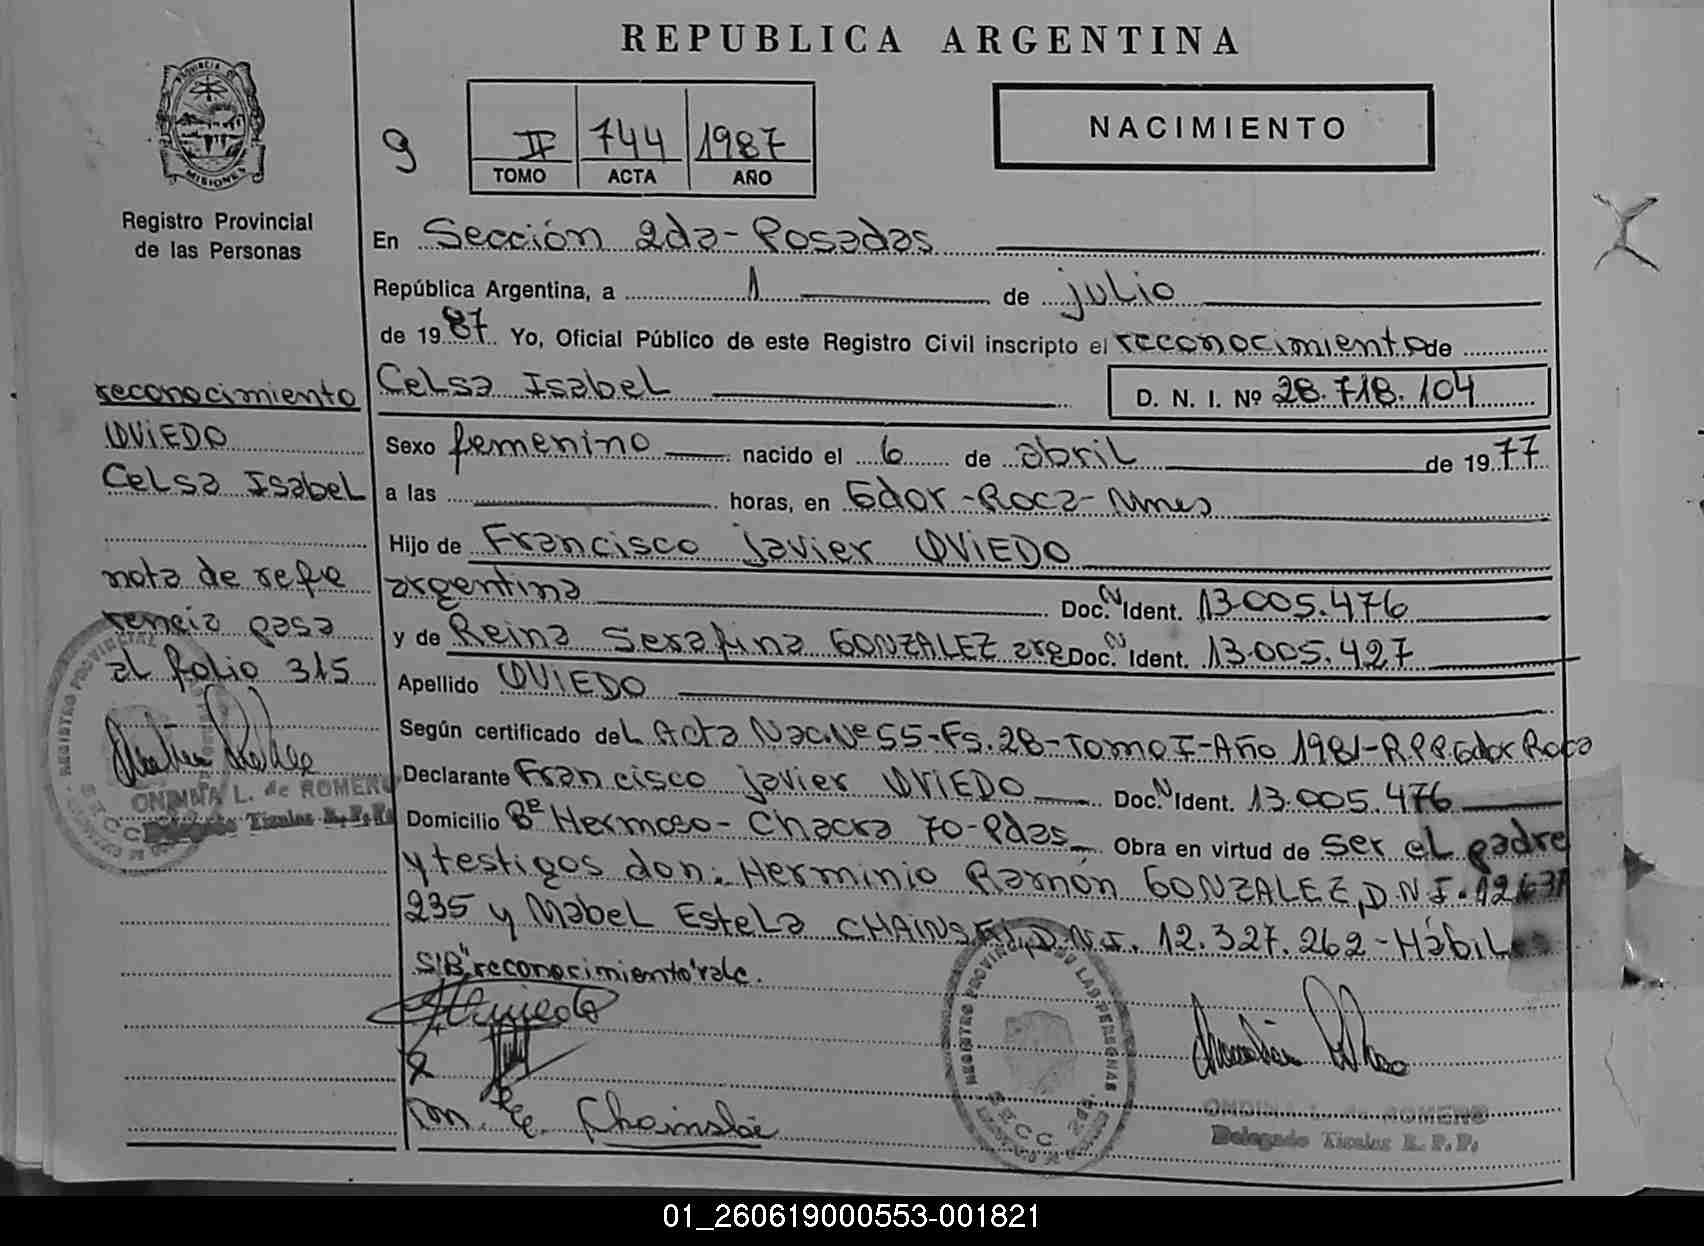 REPUBLICA ARGENTINA
PROVINCIA DE
MISIONES
Registro Provincial
de las Personas
9
II 744 1987
TOMO ACTA AÑO
NACIMIENTO
En Sección 2da - Posadas
República Argentina, a 1 de julio
de 1987 Yo, Oficial Público de este Registro Civil inscripto el reconocimiento de
Celsa Isabel D. N. I. Nº 28.718.104
Sexo femenino nacido el 6 de abril de 1977
a las horas, en Gdor - Roca - Mnes
Hijo de Francisco Javier OVIEDO
argentina Doc. N Ident. 13.005.476
y de Reina Serafina GONZALEZ arg Doc. N Ident. 13.005.427
Apellido OVIEDO
Según certificado del Acta Nac. Nº 55 - Fs. 28 - Tomo I - Año 1981 - R.P.P. Gdor Roca
Declarante Francisco Javier OVIEDO Doc. N Ident. 13.005.476
Domicilio Bº Hermoso - Chacra 70 - Pdas Obra en virtud de ser el padre
y testigos don: Herminio Ramón GONZALEZ, D.N.I. 12.631
235 y Mabel Estela D.N.I. 12.327.262 - Hábiles
S/B "reconocimiento" vale.
reconocimiento
OVIEDO
Celsa Isabel
nota de refe
rencia pasa
al folio 315
REGISTRO PROVINCIAL
ONDINA L. de ROMERO
Delegado Titular R. P. P.
REGISTRO PROVINCIAL DE LAS PERSONAS
SECC
ONDINA L. de ROMERO
Delegado Titular R. P. P.
01_260619000553-001821